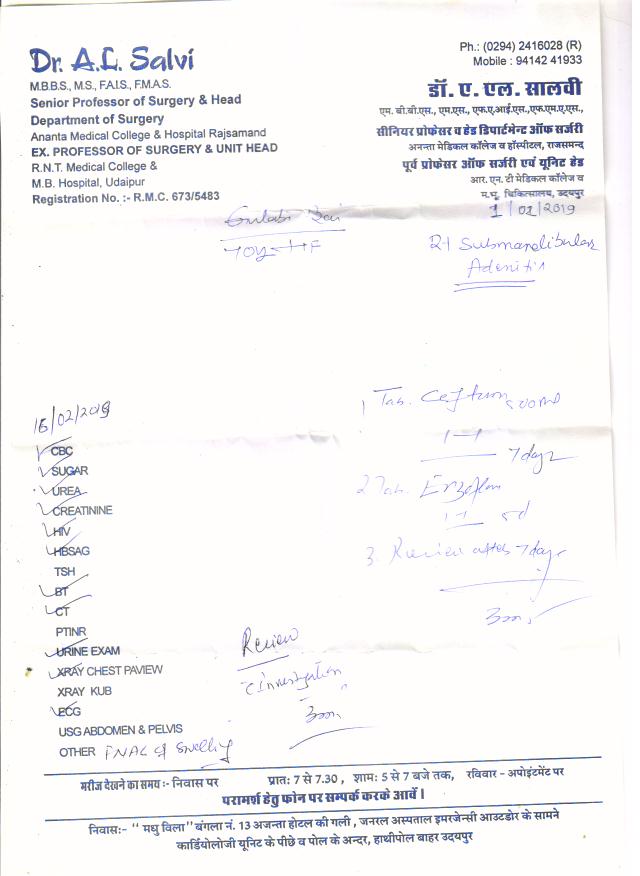 Dr. A.L. Salvi
M.B.B.S., M.S., F.A.I.S., F.M.A.S.
Senior Professor of Surgery & Head
Department of Surgery
Ananta Medical College & Hospital Rajsamand
EX. PROFESSOR OF SURGERY & UNIT HEAD
R.N.T. Medical College &
M.B. Hospital, Udaipur
Registration No. :- R.M.C. 673/5483
Ph.: (0294) 2416028 (R)
Mobile : 94142 41933
डॉ. ए. एल. सालवी
एम. बी.बी.एस., एम.एस., एफ.ए.आई.एस.,एफ.एम.ए.एस.,
सीनियर प्रोफेसर व हेड डिपार्टमेन्ट ऑफ सर्जरी
अनन्ता मेडिकल कॉलेज व हॉस्पीटल, राजसमन्द
पूर्व प्रोफेसर ऑफ सर्जरी एवं यूनिट हेड
आर. एन. टी मेडिकल कॉलेज व
म.भू. चिकित्सालय, उदयपुर
1/02/2019
Gulab
70y
Submandibular
Adenitis
1 Tab. 500mg
1-1
7days
2 Tab.
1-1 5d
3. Review after 7days
16/02/2019
CBC
SUGAR
UREA
CREATININE
HIV
HBSAG
TSH
BT
CT
PTINR
URINE EXAM
XRAY CHEST PAVIEW
XRAY KUB
ECG
USG ABDOMEN & PELVIS
OTHER FNAC of Swelling
Review
c Investigation
मरीज देखने का समय :- निवास पर प्रात: 7 से 7.30 , शाम: 5 से 7 बजे तक, रविवार - अपोइंटमेंट पर
परामर्श हेतु फोन पर सम्पर्क करके आवें।
निवास:- “ मधु विला” बंगला नं. 13 अजन्ता होटल की गली , जनरल अस्पताल इमरजेन्सी आउटडोर के सामने
कार्डियोलोजी यूनिट के पीछे व पोल के अन्दर, हाथीपोल बाहर उदयपुर